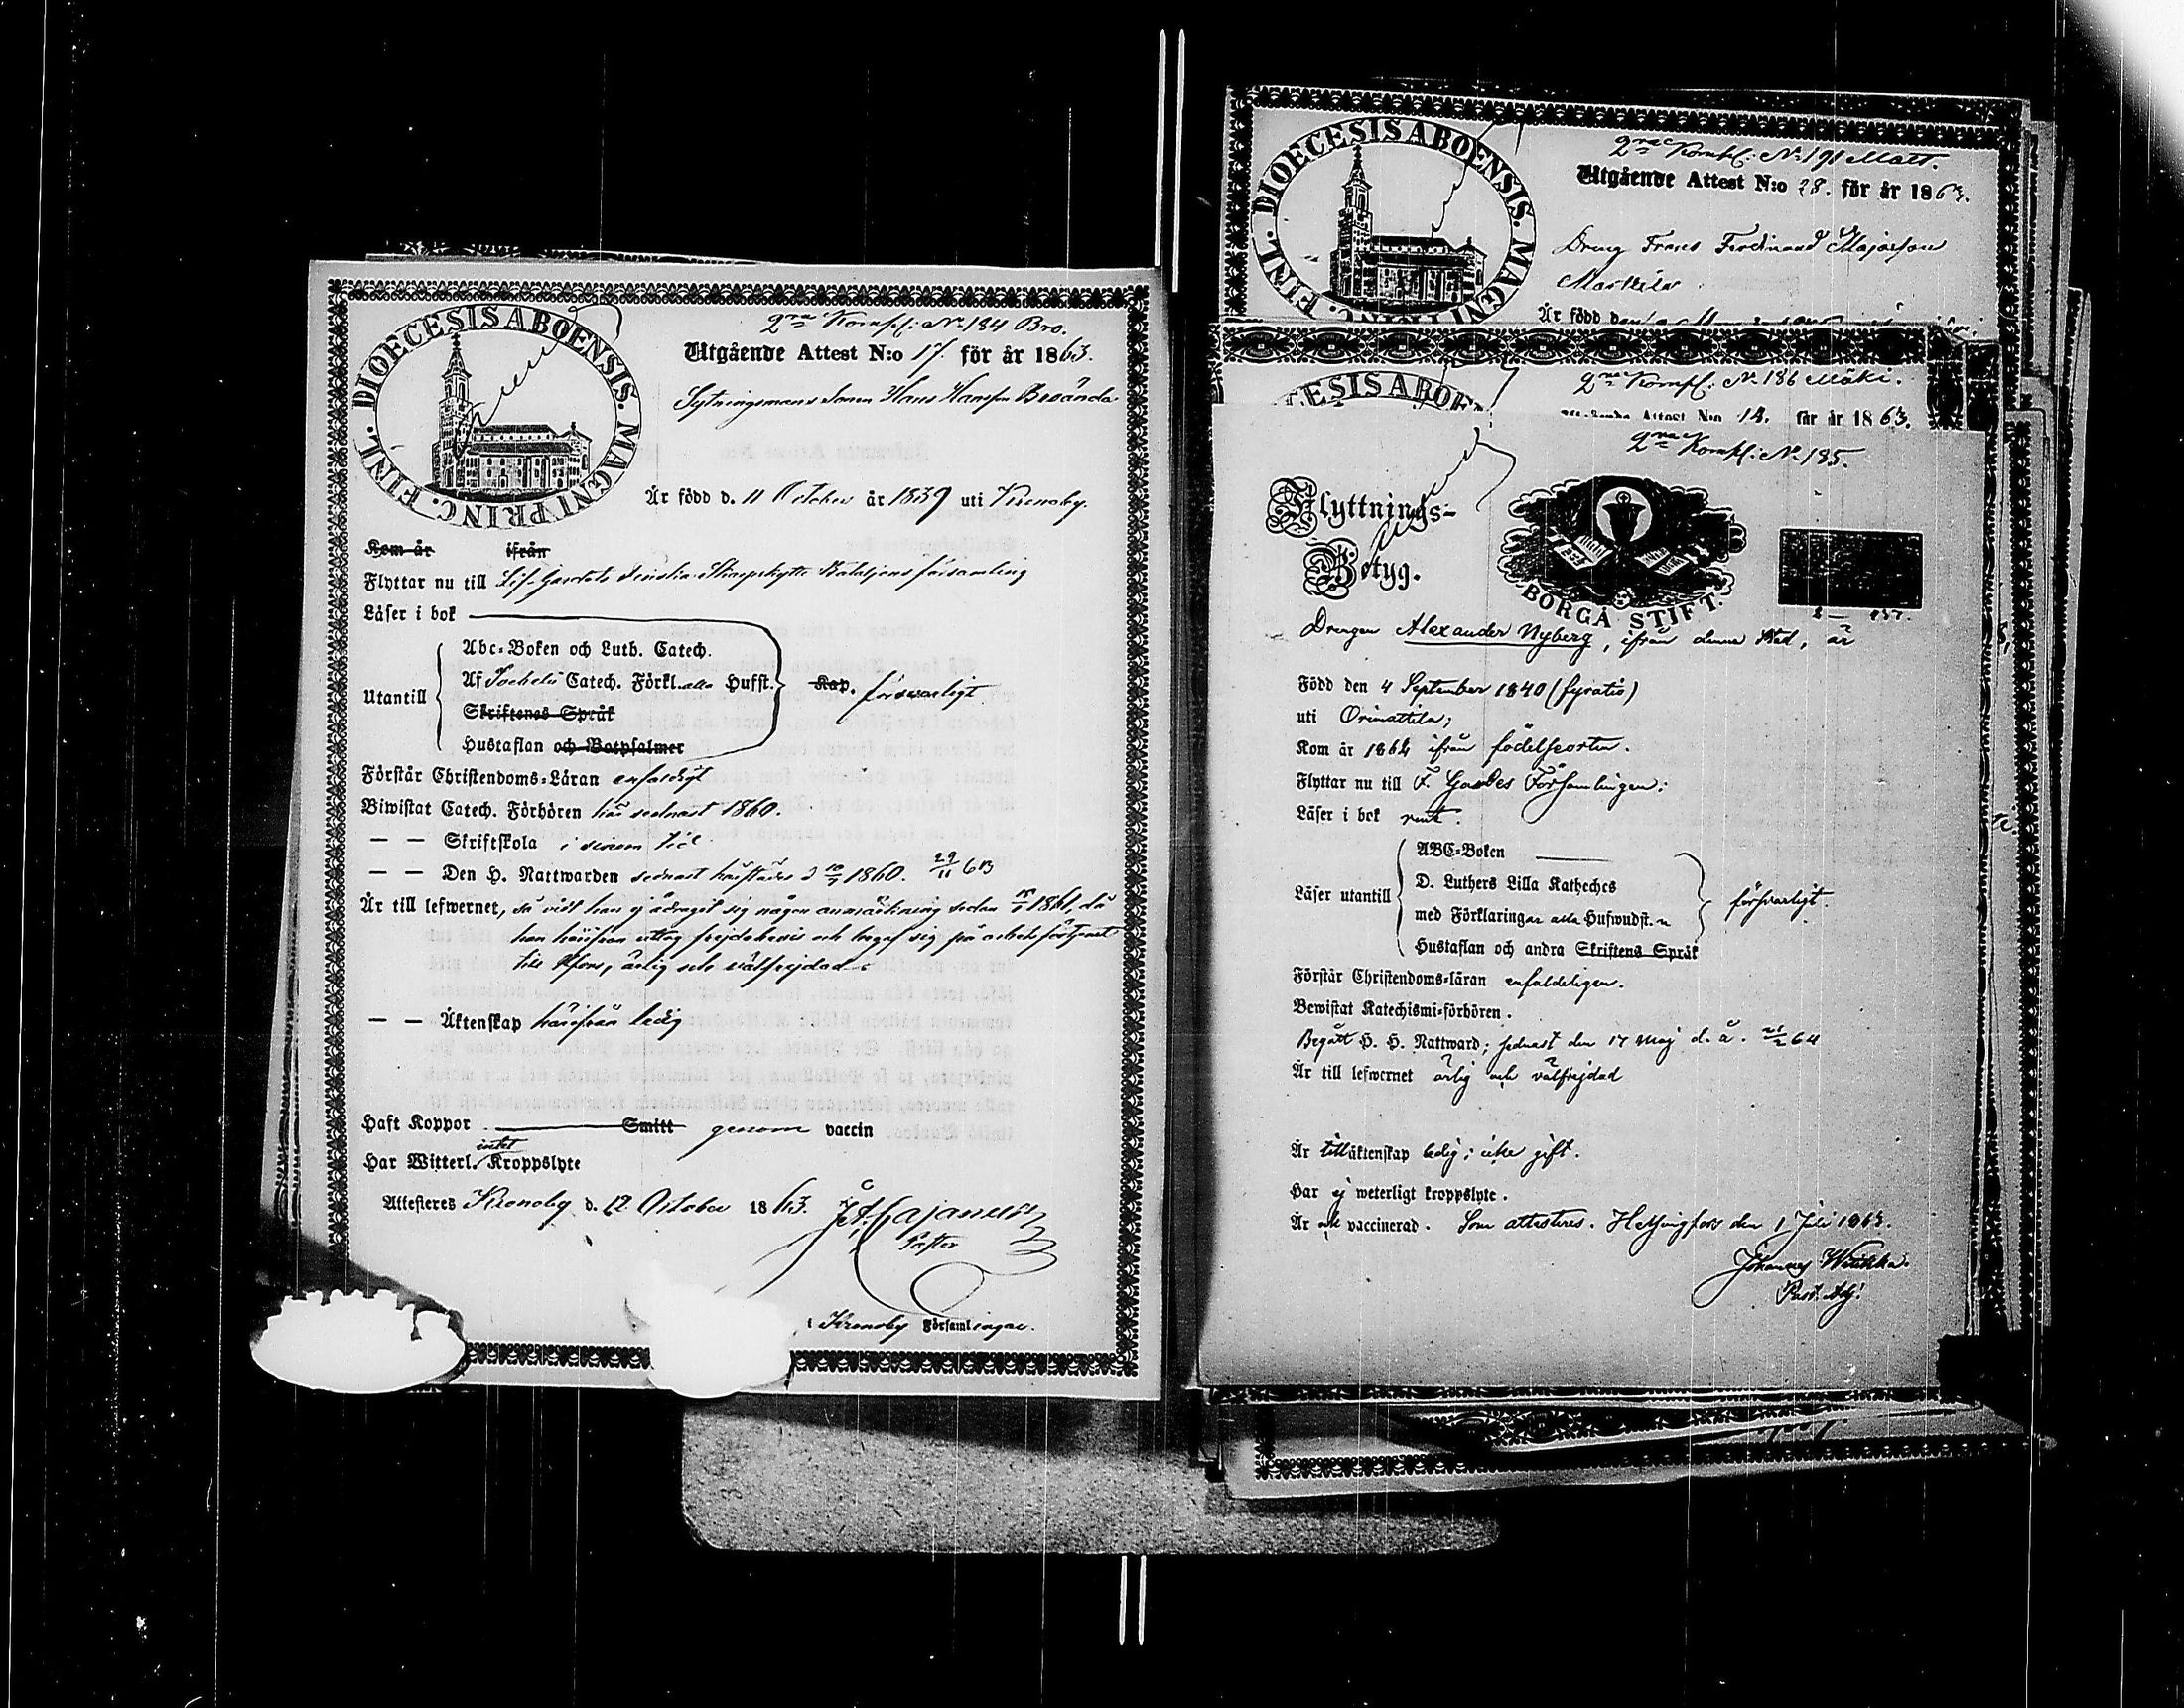 DIOECESIS ABOENSIS. MAGNI PRINC. FINL.
2ra Kompl: No 184 Bro.
Utgående Attest N:o 17. för år 1863.
Sytningsmans Sonen Hans Hansson Broända
Är född d. 11 October år 1839 uti Kronoby.
Kom år ifrån
Flyttar nu till Lif-Gardets Finska Skarpskytte Bataljons församling
Läser i bok
Utantill
Abc-Boken och Luth. Catech.
Af Catech. Förkl. alla Hufst. Kap. försvarligt
Skriftenes Språk
Hustaflan och Botpsalmer
Förstår Christendoms-Läran enfaldigt
Biwistat Catech. Förhören här sednast 1860.
— — Skriftskola i sinom tid
— — Den H. Nattwarden sednast härstädes d 1860. 29/11 63
Är till lefwernet, så vidt han ej ådragit sig någon anmärkning sedan 1861, då
han härifrån uttog frejdebevis och begaf sig på arbetsförtjenst
till Hfors, ärlig och välfrejdad
— — Äktenskap härifrån ledig
Haft Koppor Smitt genom vaccin
Har Witterl. intet Kroppslyte
Attesteras Kronoby d. 12 October 1863.
J. A. Cajanus
Paster
i Kronoby Församlingar.
DIOECESIS ABOENSIS. MAGNI PRINC. FINL.
2ra Kompl: No 191 Matt.
Utgående Attest N:o 28. för år 1863.
Dreng Frans Ferdinand Majasson
Markila
Är född den
2ra Kompl: No 186 Mäki.
Attest N:o 14. för år 1863.
2ra Kompl: No 185.
Flyttnings-
Betyg.
BORGÅ STIFT.
Drengen Alexander Nyberg, ifrån denna Stad, är
Född den 4 September 1840 (fyratio)
uti Orimattila;
Kom år 1862 ifrån födelseorten.
Flyttar nu till F. Gardes Församlingen;
Läser i bok rent.
Läser utantill
ABC-Boken
D. Luthers Lilla Katheches
med Förklaringar alla Hufwudst.n försvarligt.
Hustaflan och andra Skriftens Språk
Förstår Christendoms-läran enfaldeligen.
Bewistat Katechismi-förhören.
Begått H. H. Nattward; sednast den 17 Maj d. å. 21/2 64
Är till lefwernet ärlig och välfrejdad
Är till äktenskap ledig; icke gift.
Har ej weterligt kroppslyte.
Är vaccinerad. Som attesteras. Helsingfors den 1 Juli 1863.
Johannes
Past. Adj.